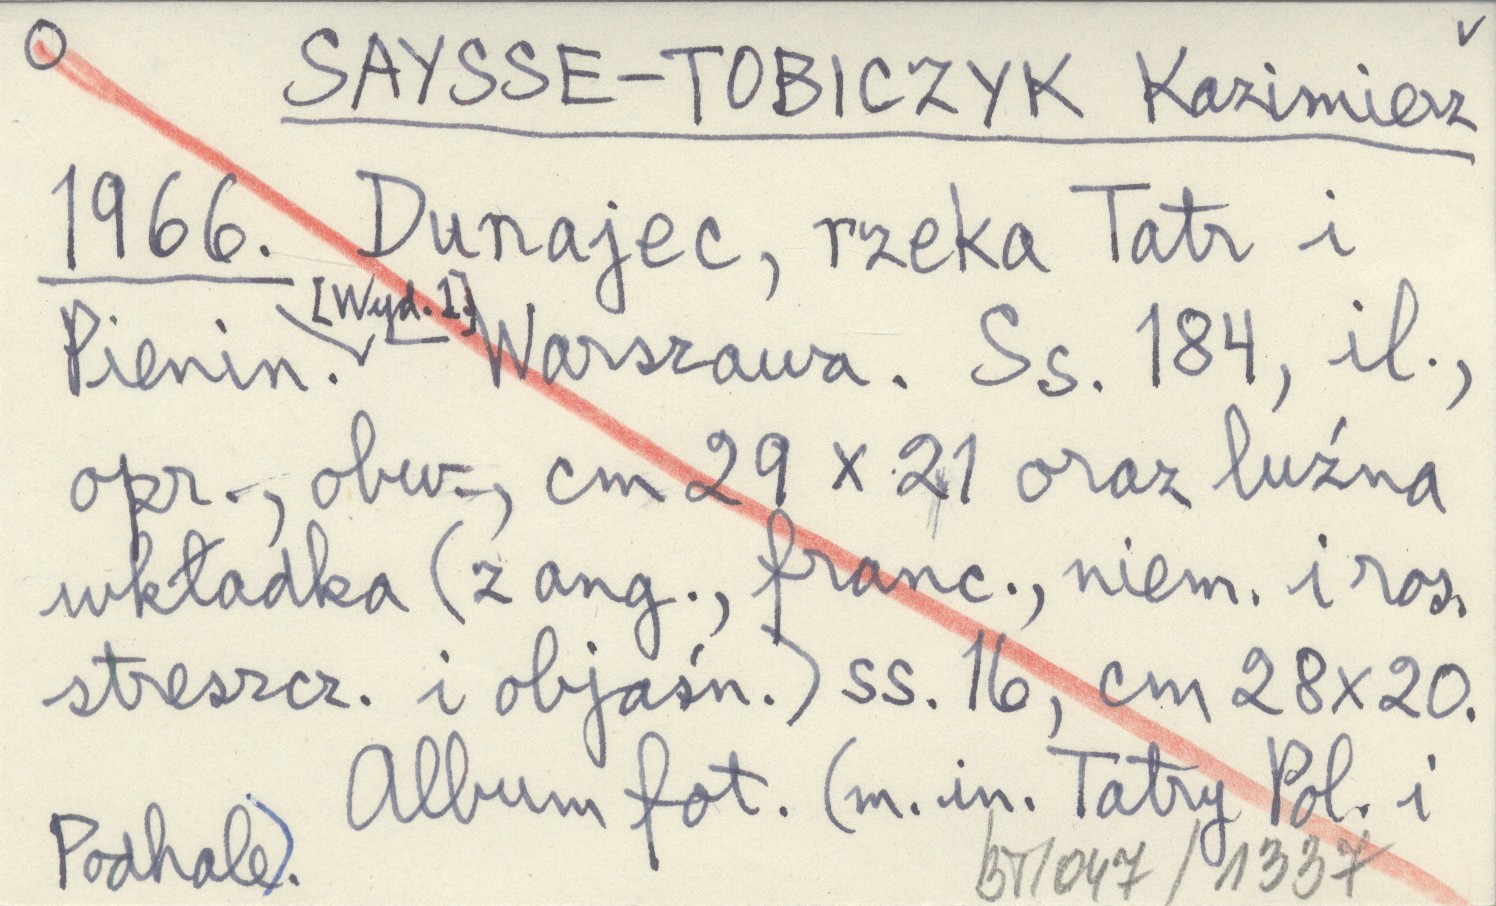 SAYSSE-TOBICZYK Kazimierz
1966. Dunajec, rzeka Tatr i
[Wyd. 1]
Pienin. Warszawa. Ss. 184, il.,
opr., obw., cm 29 x 21 oraz luźna
wkładka (z ang., franc., niem. i ros.
streszcz. i objaśn.) ss. 16, cm 28x20.
Album fot. (m. in. Tatry Pol. i
Podhale).
BT/047/1337